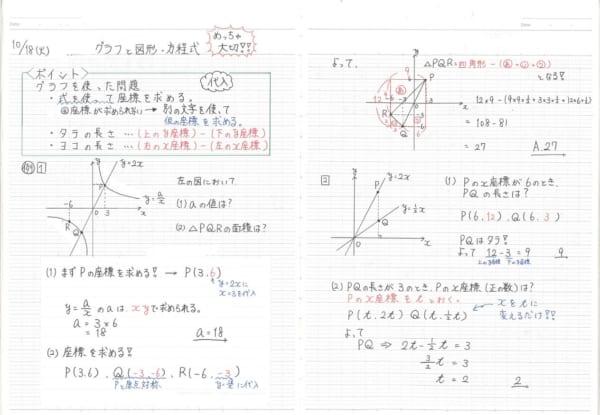 10/18(火)
グラフと図形・方程式
めっちゃ
大切!!
〈ポイント〉
グラフを使った問題
代入
・式を使って座標を求める。
座標が求められない → 別の文字を使って
仮の座標を求める。
・タテの長さ … (上のy座標) - (下のy座標)
・ヨコの長さ … (右のx座標) - (左のx座標)
例 1
y=2x
y=a/x
P
R
Q
-6
0 3
x
左の図において
(1) aの値は?
(2) △PQRの面積は?
(1) まずPの座標を求める!! → P(3.6)
y=2xに
x=3を代入
y=a/x のaは、xyで求められる。
a = 3×6
= 18
a=18
(2) 座標を求める!!
P(3.6), Q(-3.-6), R(-6.-3)
Pと原点対称
に代入
よって、
△PQR=四角形-(あ+い+う)
となる!!
12×9 - (9×9×1/2+3×3×1/2+12×6×1/2)
= 108 - 81
= 27
A.27
2
y=2x
P
y=1/2x
Q
x
(1) Pのx座標が6のとき、
PQの長さは?
P(6.12), Q(6.3)
PQはタテ!!
よって 12-3 = 9
9
上のy座標 下のy座標
(2) PQの長さが3のとき、Pのx座標(正の数)は?
Pのx座標をtとおく。
P(t.2t) Q(t.1/2t)
xをtに
変えるだけ!!
よって
PQ ⇒ 2t-1/2t = 3
3/2t = 3
t = 2
2